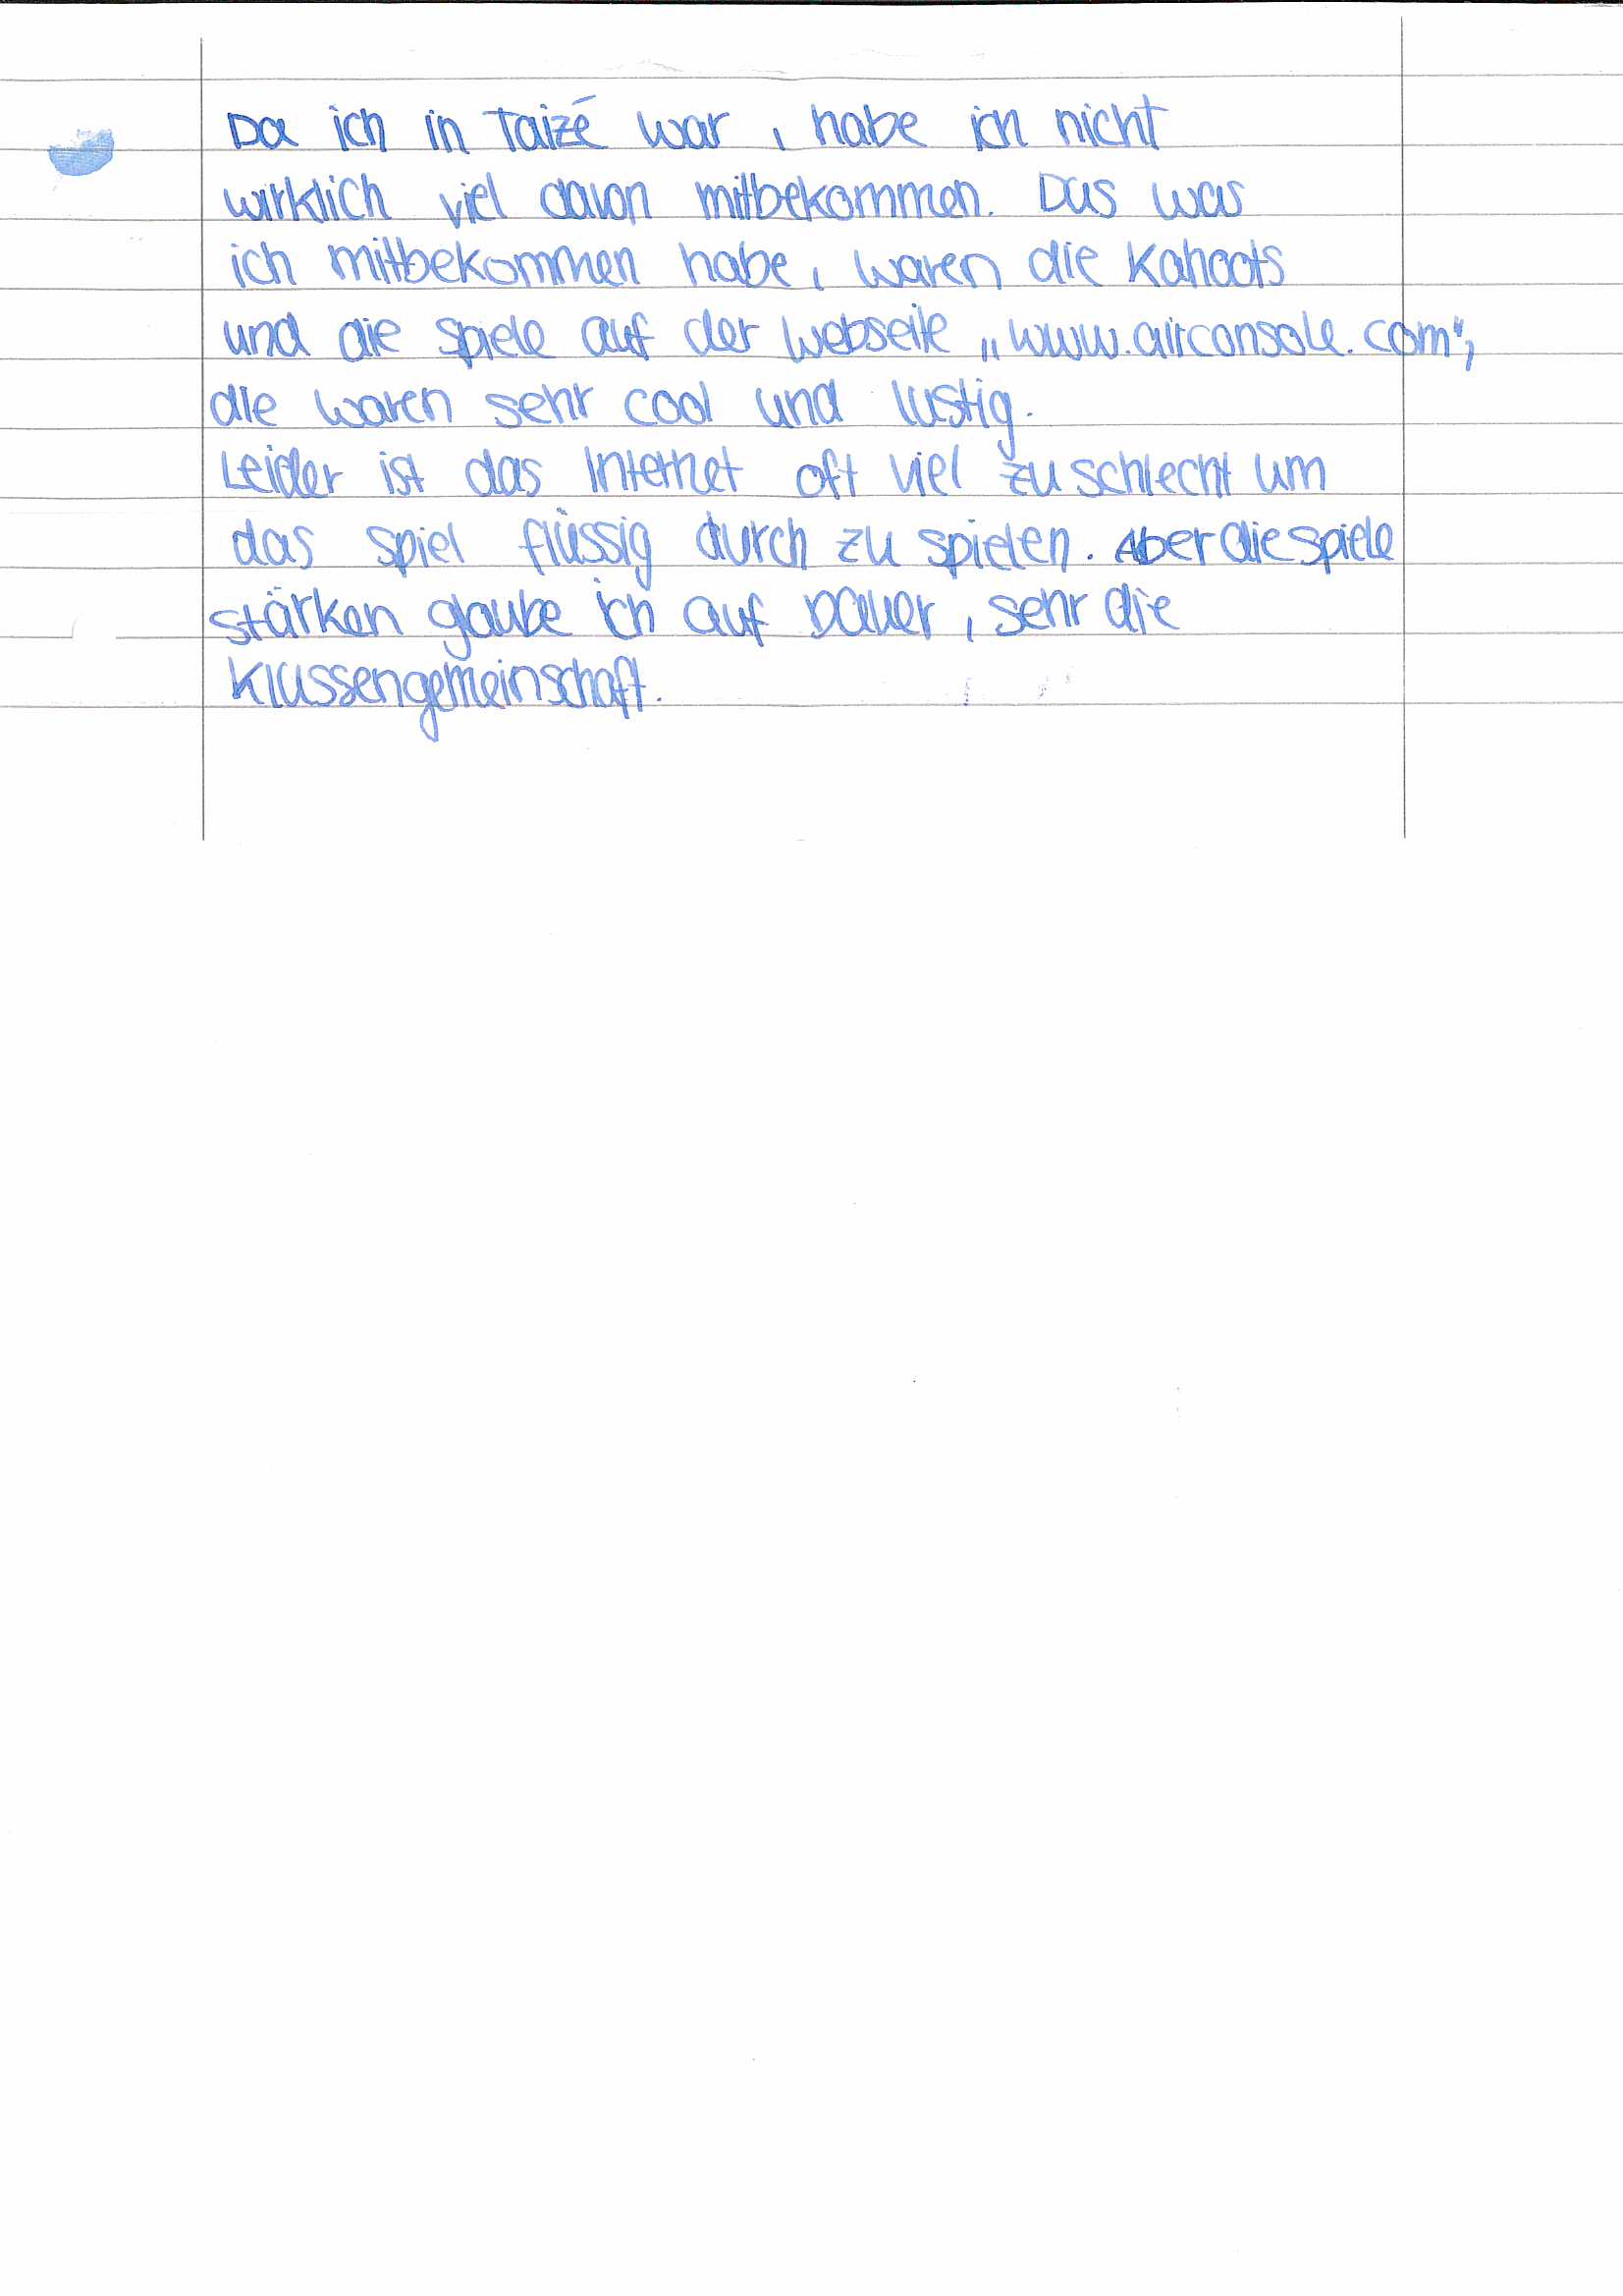 Da ich in Taizé war, habe ich nicht
wirklich viel davon mitbekommen. Das was
ich mitbekommen habe, waren die Kahoots
und die Spiele auf der Webseite „www.airconsole.com",
die waren sehr cool und lustig.
Leider ist das Internet oft viel zu schlecht um
das Spiel flüssig durch zu spielen. Aber die Spiele
stärken glaube ich auf Dauer, sehr die
Klassengemeinschaft.